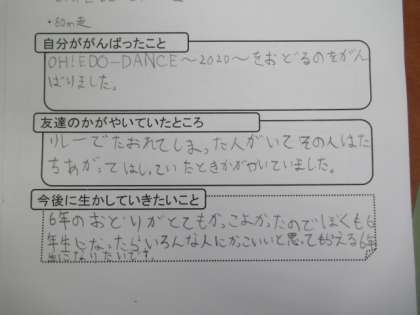 ・80m走
自分ががんばったこと
OH!EDO-DANCE～2020～をおどるのをがん
ばりました。
友達のかがやいていたところ
リレーでたおれてしまった人がいてその人はた
ちあがってはしっていたときかがやいていました。
今後に生かしていきたいこと
6年のおどりがとてもかっこよかったのでぼくも6
年生になったらいろんな人にかっこいいと思ってもらえる6年
生になりたいです